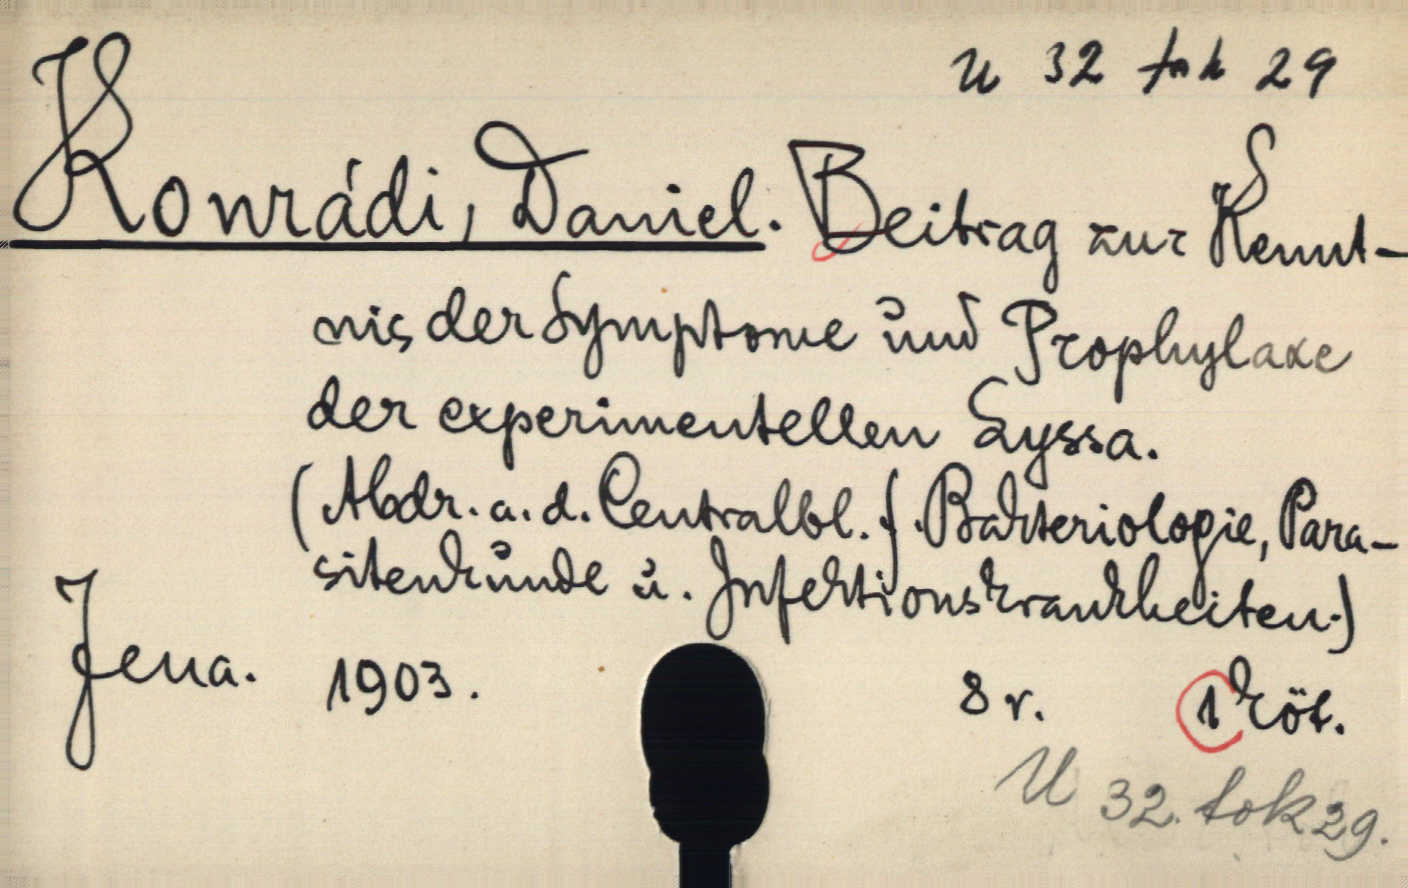 U 32 tok 29
Konrádi, Daniel. Beitrag zur Kennt-
nis der Symptome und Prophylaxe
der experimentellen Lyssa.
(Abdr. a. d. Centralbl. f. Bakteriologie, Para-
sitenkunde u. Infektionskrankheiten.)
Jena. 1903. 8 r. 1 köt.
U 32. tok 29.